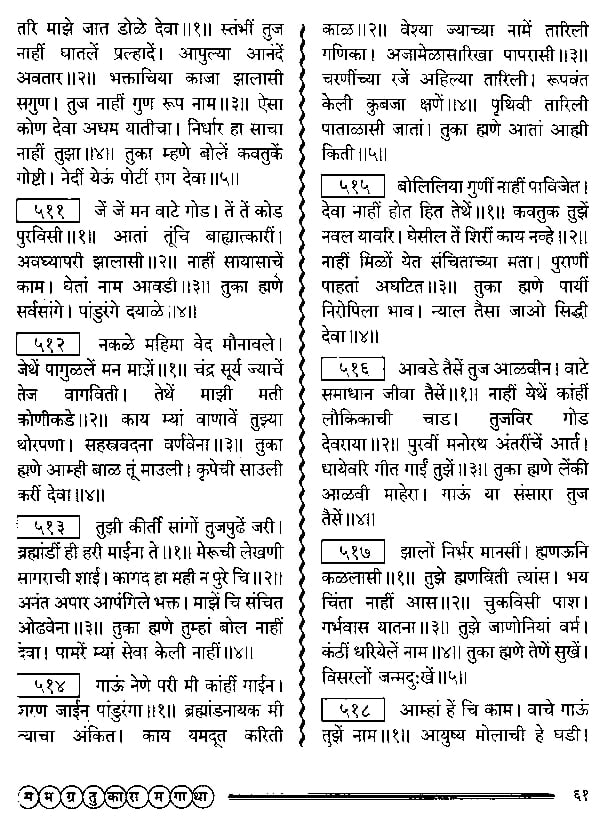 तरि माझे जात डोळे देवा॥१॥ स्तंभीं तुज
नाहीं घातलें प्रल्हादें। आपुल्या आनंदें
अवतार॥२॥ भक्ताचिया काजा झालासी
सगुण। तुज नाहीं गुण रूप नाम॥३॥ ऐसा
कोण देवा अधम यातीचा। निर्धार हा साचा
नाहीं तुझा॥४॥ तुका म्हणे बोलें कवतुकें
गोष्टी। नेदीं येऊं पोटीं राग देवा॥५॥
५११ जें जें मन वाटे गोड। तें तें कोड
पुरविसी॥१॥ आतां तूंचि बाह्यात्कारीं।
अवघ्यापरी झालासी॥२॥ नाहीं सायासाचें
काम। घेतां नाम आवडी॥३॥ तुका ह्मणे
सर्वसांगे। पांडुरंगे दयाळे॥४॥
५१२ नकळे महिमा वेद मौनावले।
जेथें पांगुळलें मन माझें॥१॥ चंद्र सूर्य ज्याचें
तेज वागविती। तेथें माझी मती
कोणीकडे॥२॥ काय म्यां वाणावें तुझ्या
थोरपणा। सहस्त्रवदना वर्णवेना॥३॥ तुका
ह्मणे आम्ही बाळ तूं माउली। कृपेची साउली
करीं देवा॥४॥
५१३ तुझी कीर्ती सांगों तुजपुढें जरी।
ब्रह्मांडीं ही हरी माईना ते॥१॥ मेरूची लेखणी
सागराची शाई। कागद हा मही न पुरे चि॥२॥
अनंत अपार आपंगिले भक्त। माझें चि संचित
ओढवेना॥३॥ तुका ह्मणे तुम्हां बोल नाहीं
देवा। पामरें म्यां सेवा केली नाहीं॥४॥
५१४ गाऊं नेणे परी मी कांहीं गाईन।
शरण जाईन पांडुरंगा॥१॥ ब्रह्मांडनायक मी
त्याचा अंकित। काय यमदूत करिती
काळ॥२॥ वेश्या ज्याच्या नामें तारिली
गणिका। अजामेळासारिखा पापरासी॥३॥
चरणींच्या रजें अहिल्या तारिली। रूपवंत
केली कुबजा क्षणें॥४॥ पृथिवी तारिली
पाताळासी जातां। तुका ह्मणे आतां आह्मी
किती॥५॥
५१५ बोलिलिया गुणीं नाहीं पाविजेत।
देवा नाहीं होत हित तेथें॥१॥ कवतुक तुझें
नवल यावरि। घेसील तें शिरीं काय नव्हे॥२॥
नाहीं मिळों येत संचिताच्या मता। पुराणीं
पाहतां अघटित॥३॥ तुका ह्मणे पायीं
निरोपिला भाव। न्याल तैसा जाओ सिद्धी
देवा॥४॥
५१६ आवडे तैसें तुज आळवीन। वाटे
समाधान जीवा तैसें॥१॥ नाहीं येथें कांहीं
लौकिकाची चाड। तुजविर गोड
देवराया॥२॥ पुरवीं मनोरथ अंतरींचें आर्त।
धायेवरि गीत गाईं तुझें॥३॥ तुका ह्मणे लेंकी
आळवी माहेरा। गाऊं या संसारा तुज
तैसें॥४॥
५१७ झालों निर्भर मानसीं। ह्मणऊनि
कळलासी॥१॥ तुझे ह्मणविती त्यांस। भय
चिंता नाहीं आस॥२॥ चुकविसी पाश।
गर्भवास यातना॥३॥ तुझे जाणोनियां वर्म।
कंठीं धरियेलें नाम॥४॥ तुका ह्मणे तेणें सुखें।
विसरलों जन्मदुःखें॥५॥
५१८ आम्हां हें चि काम। वाचे गाऊं
तुझें नाम॥१॥ आयुष्य मोलाची हे घडी।
म भ ग्र तु का रा म गा था ६१